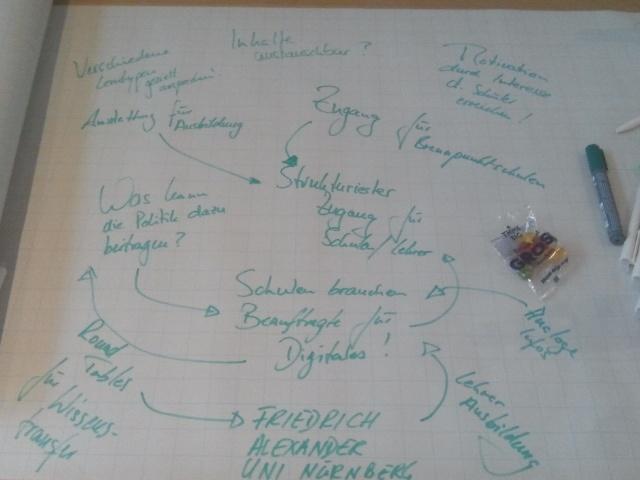 Verschiedene
Lerntypen
gezielt
ansprechen
Inhalte
austauschbar?
Motivation
durch Interesse
d. Schüler
erreichen!
Ausstattung für
Ausbildung
Zugang
für
Brennpunktschulen
Strukturierter
Zugang für
Schüler/Lehrer
Was kann
die Politik dazu
beitragen?
GROSS
Schulen brauchen
Beauftragte für
Digitales!
Analoge
Infos
Round
Tables
für Wissens-
transfer
Lehrer
Ausbildung
FRIEDRICH
ALEXANDER
UNI NÜRNBERG